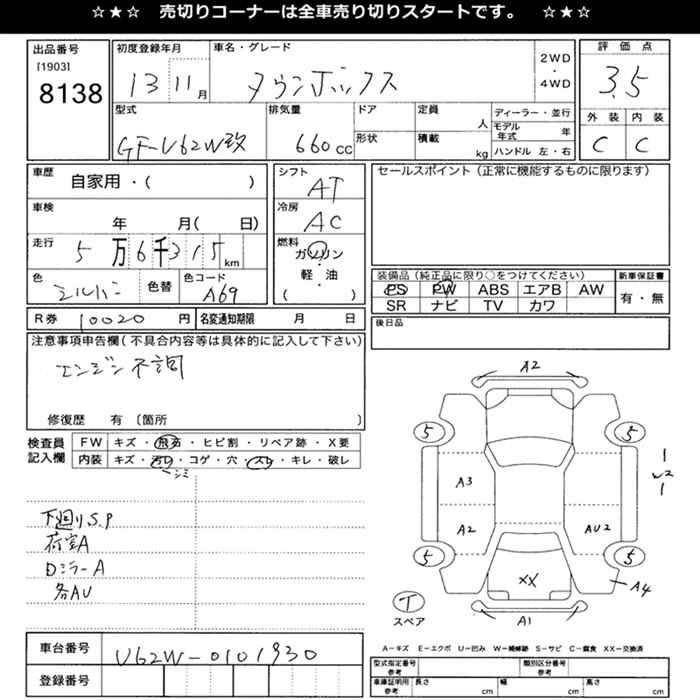 ☆★☆ 売切りコーナーは全車売り切りスタートです。 ☆★☆
出品番号 [1903] 8138
初度登録年月 13 11月
車名・グレード タウンボックス
2WD・4WD
評価点 3.5
外装 C 内装 C
型式 GF-U62W改
排気量 660cc
ドア 形状
定員 人
積載 kg
ディーラー・並行
モデル年式 年
ハンドル 左・右
車歴 自家用・( )
シフト AT
セールスポイント(正常に機能するものに限ります)
車検 年 月( 日)
冷房 AC
走行 5万6千315km
燃料 ガソリン・軽・油 ( )
色 シルバー 色替 色コード A69
装備品(純正品に限り○をつけてください)
PS PW ABS エアB AW
SR ナビ TV カワ
新車保証書 有・無
R券 10020円 名変通知期限 月 日
後日品
注意事項申告欄(不具合内容等は具体的に記入して下さい)
エンジン不調
修復歴 有 〔箇所 〕
検査員記入欄
FW キズ・飛石・ヒビ割・リペア跡・X要
内装 キズ・汚レ・コゲ・穴・スレ・キレ・破レ
シミ
下廻りS.P
荷室A
DミラーA
各AU
A2
5 5
A3
A2 AU2
5 5
XX
A4
A1
1
W2
1
T
スペア
車台番号 U62W-0101930
登録番号
A-キズ E-エクボ U-凹み W-補修跡 S-サビ C-腐食 XX-交換済
型式指定番号 参考 類別区分番号 参考
車庫証明用 参考 長さ cm 幅 cm 高さ cm